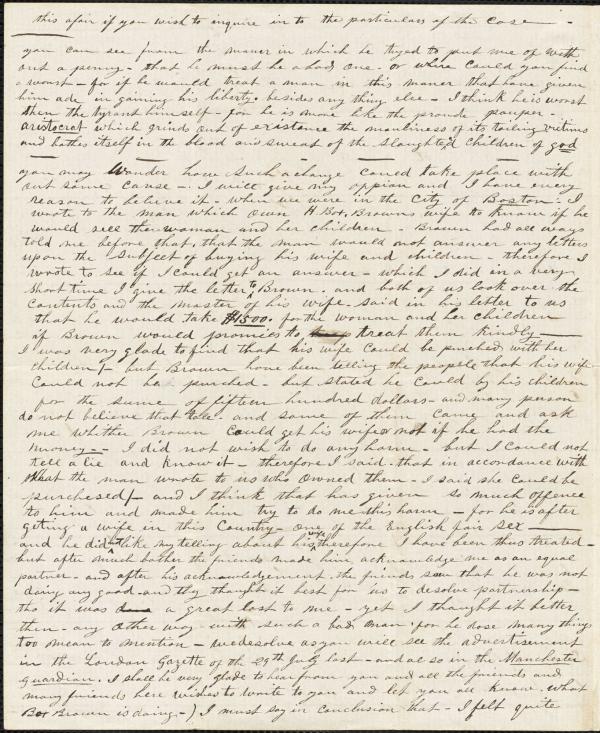 this afair if you wish to inquire in to the particulars of the case -
you can see from the maner in which he tryed to put me of with
out a penny - that he must be a bad one - or where could you find
a worst - for if he would treat a man in this maner that have given
him ade in gaining his liberty. besides any thing else - I think he is worst
then the tyrant himself - for he is more like the proude pauper -
aristocrat which grinds out of existance the manliness of its toiling victims
and bathes itself in the blood and sweat of the slaughted children of god
you may Wonder how such a change could take place with
out some cause - I will give my oppian and I have every
reason to beleive it - when we were in the City of Boston - I
wrote to the man which own H Box Browns wife to know if he
would sell the woman and her children - Brown had all ways
told me before that, that the man would not answer any letters
upon the subject of buying his wife and children - therefore I
wrote to see if I could get an answer - which I did in a very
short time I give the letter to Brown. and both of us look over the
contents and the master of his wife. said in his letter to us
that he would take $1500. for the woman and her children
if Brown would promies to treat them kindly -
I was very glade to find that his wife could be purched with her
children / - but Brown have been telling the people that his wife
could not be purched - but stated he could by his children
for the sume of fifteen hundred dollars - and many person
do not believe that tale - and some of them came and ask
me whether Brown could get his wife or not if he had the
money - - I did not wish to do any harm - but I could not
tell a lie and know it - therefore I said. that in accordance with
what the man wrote to us who owned them - I said she could be
purchesed / - and I think that has given so much offence
to him and made him try to do me this harm - for he is after
geting a wife in this Country - one of the English fair sex
and he did not like my telling about his wife therefore I have been thus treated -
but after much bother the friends made him acknowledge me as an equal
partner - and after his acknowledgement. the friends saw that he was not
doing any good - and they thought it best for us to desolve partnership -
tho it was a great lost to me - yet I thought it better
then - any other way - with such a bad man - for he dose many things
too mean to mention - we desolve as you will see the advertisement
in the London Gazette of the 29th July last - and al so in the Manchester
Guardian. I shall be very glade to hear from you and all the friends and
many friends here wishes to write to you and let you all know. what
Box Brown is doing - ) I must say in conclusion that - I felt quite